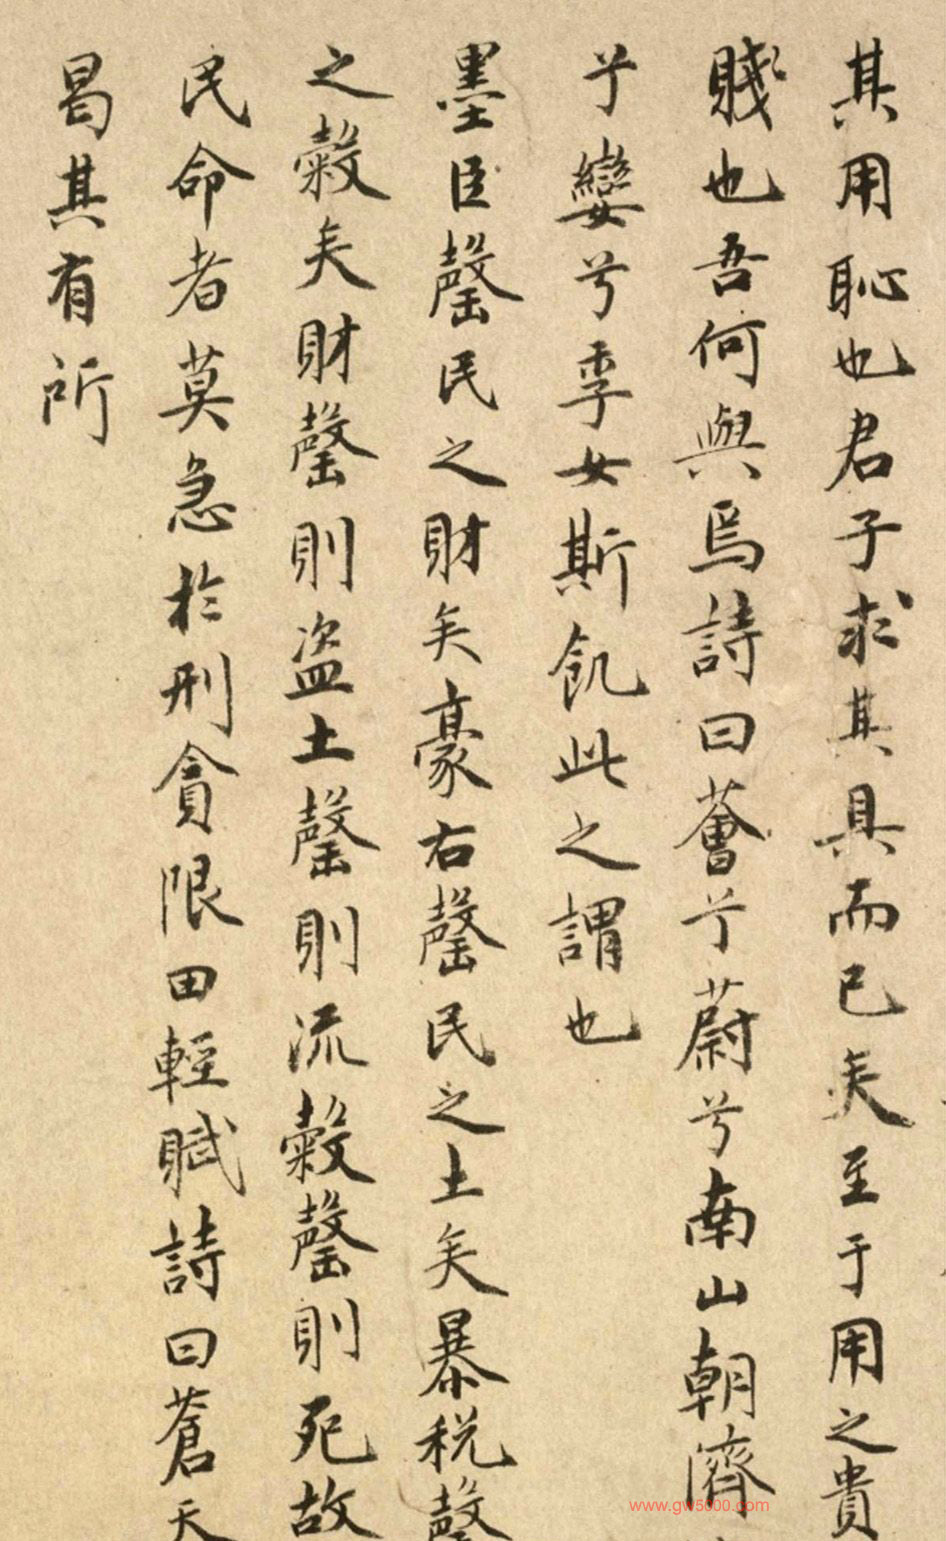 其用恥也君子求其具而已矣至于用之貴
賤也吾何與焉詩曰薈兮蔚兮南山朝隮
兮孌兮季女斯飢此之謂也
墨臣罄民之財矣豪右罄民之土矣暴稅罄
之穀矣財罄則盜土罄則流穀罄則死故
民命者莫急於刑貪限田輕賦詩曰蒼天
曷其有所
www.gw5000.com